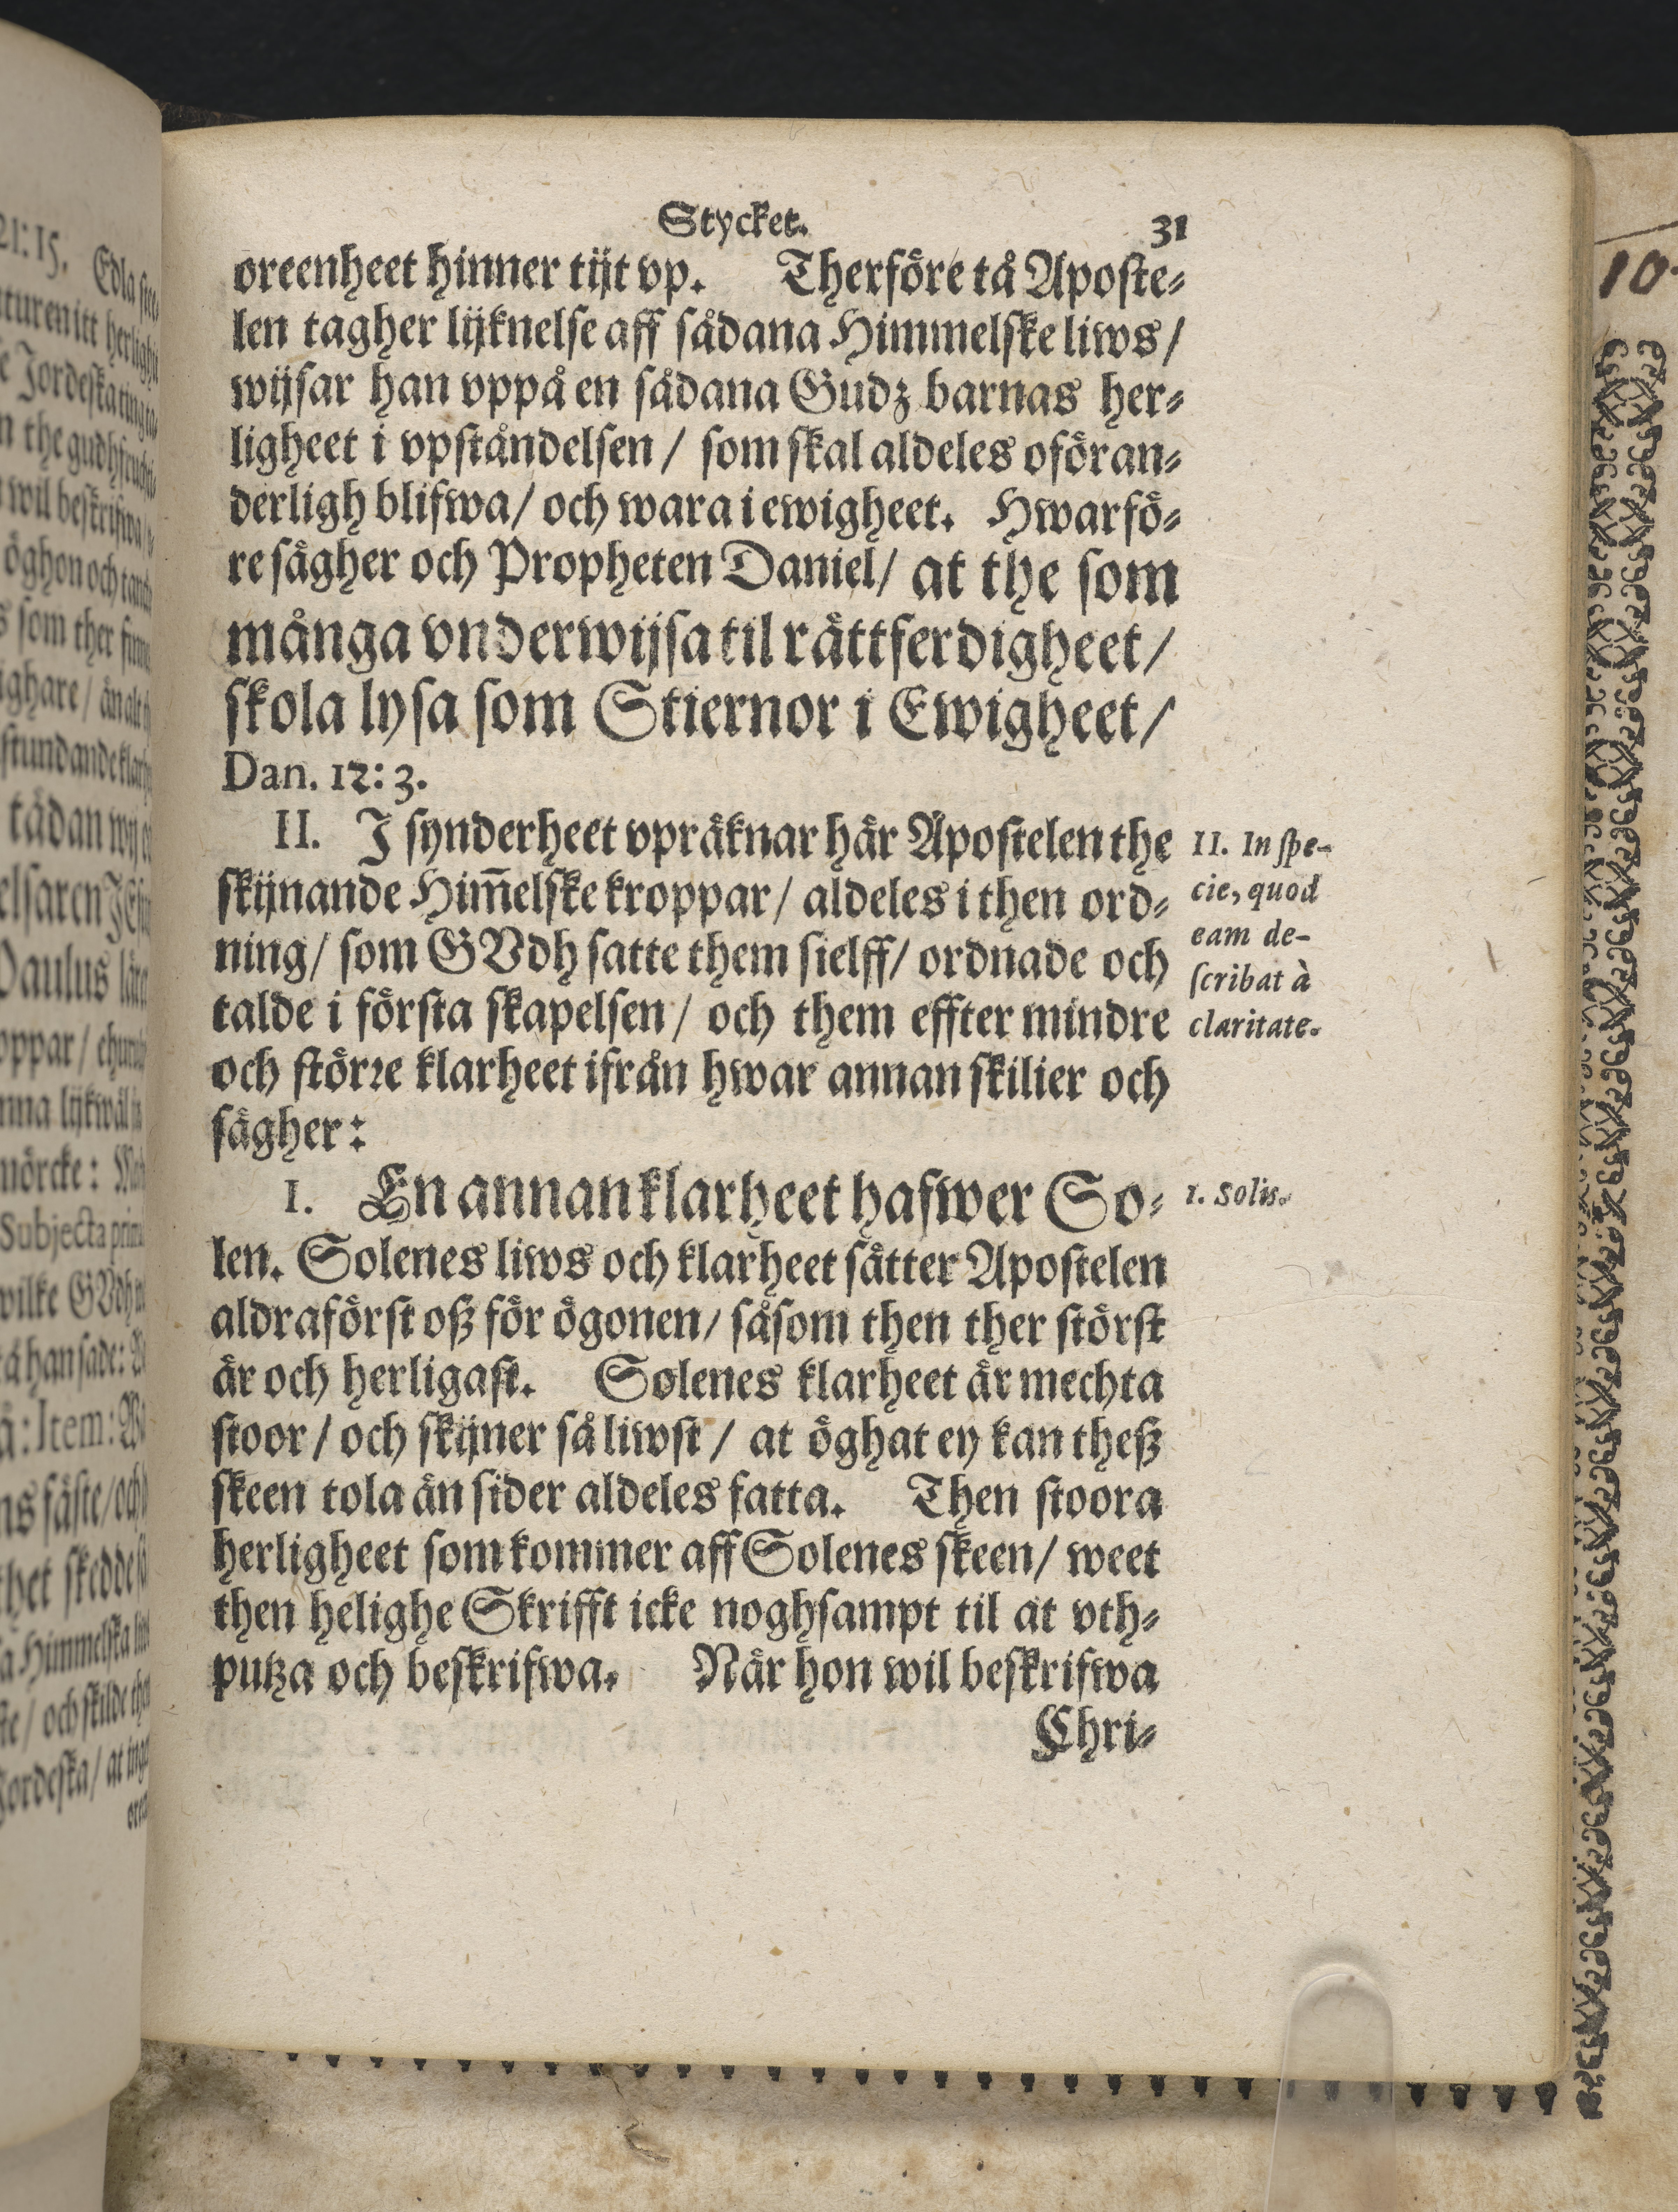 Stycket. 31
oreenheet hinner tijt vp. Therföre tå Aposte-
len tagher lijknelse aff sådana Himmelske liws /
wijsar han vppå en sådana Gudz barnas her-
ligheet i vpståndelsen / som skal aldeles oföran-
derligh blifwa / och wara i ewigheet. Hwarfö-
re sägher och Propheten Daniel / at the som
många vnderwijsa til rättferdigheet /
skola lysa som Stiernor i Ewigheet /
Dan. 12: 3.
II. J synderheet vpräknar här Apostelen the
skijnande Him̃elske kroppar / aldeles i then ord-
ning / som GVdh satte them sielff / ordnade och
talde i första skapelsen / och them effter mindre
och större klarheet ifrån hwar annan skilier och
sägher:
II. In spe-
cie, quod
eam de-
scribat à
claritate.
1. En annan klarheet hafwer So-
1. Solis.
len. Solenes liws och klarheet sätter Apostelen
aldraförst oß för ögonen / såsom then ther störst
är och herligast. Solenes klarheet är mechta
stoor / och skijner så liwst / at öghat ey kan theß
skeen tola än sider aldeles fatta. Then stoora
herligheet som kommer aff Solenes skeen / weet
then helighe Skrifft icke noghsampt til at vth-
putza och beskrifwa. När hon wil beskrifwa
Chri-
10
21: 15. Edla
the gudhfruchti-
wil beskrifwa
öghon och
som ther
ghare / än alt
stundande
tädan wij
elsaren
Paulus
oppar /
nna lijkwäl
mörcke:
Subjecta
wilke GVdh
tå han sade:
ä: Item:
ns fäste / och
thet skedde
a Himmelska
ste / och skilde
Jordeska / at